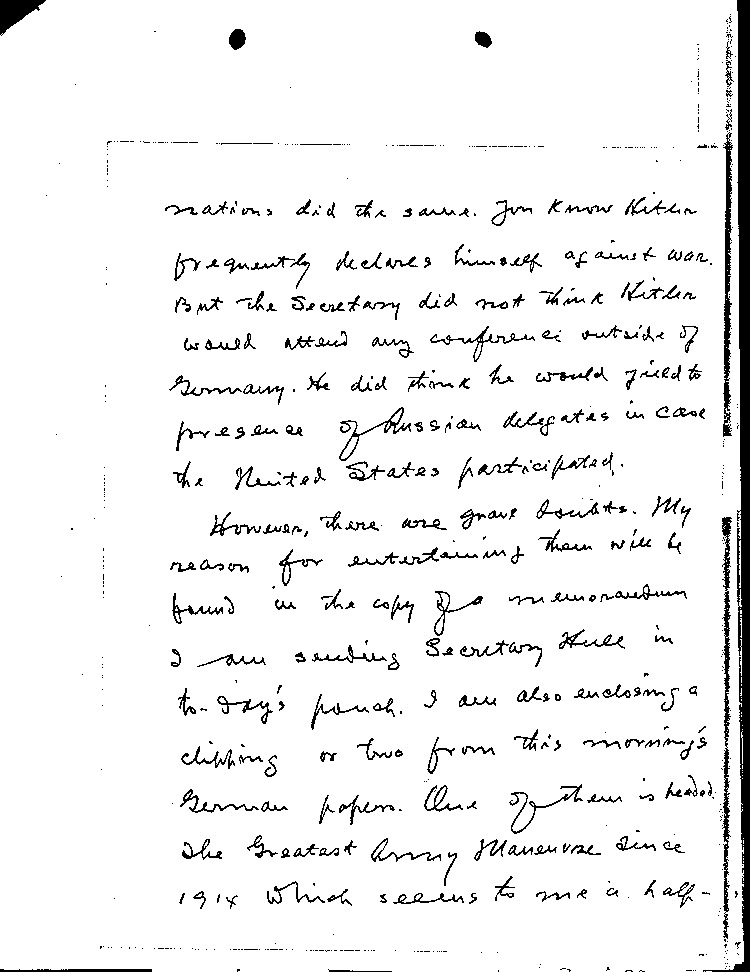 nations did the same. You know Hitler
frequently declares himself against war.
But the Secretary did not think Hitler
would attend any conference outside of
Germany. He did think he would yield to
presence of Russian delegates in case
the United States participated.
However, there are grave doubts. My
reason for entertaining them will be
found in the copy of a memorandum
I am sending Secretary Hull in
to-day's pouch. I am also enclosing a
clipping or two from this morning's
German papers. One of them is headed
The Greatest Army Maneuvre Since
1914 which seems to me a half-